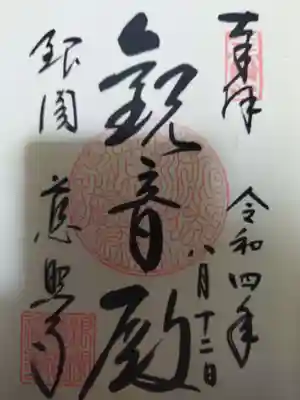 奉拝
令和四年
八月十二日
観音殿
銀閣
慈照寺